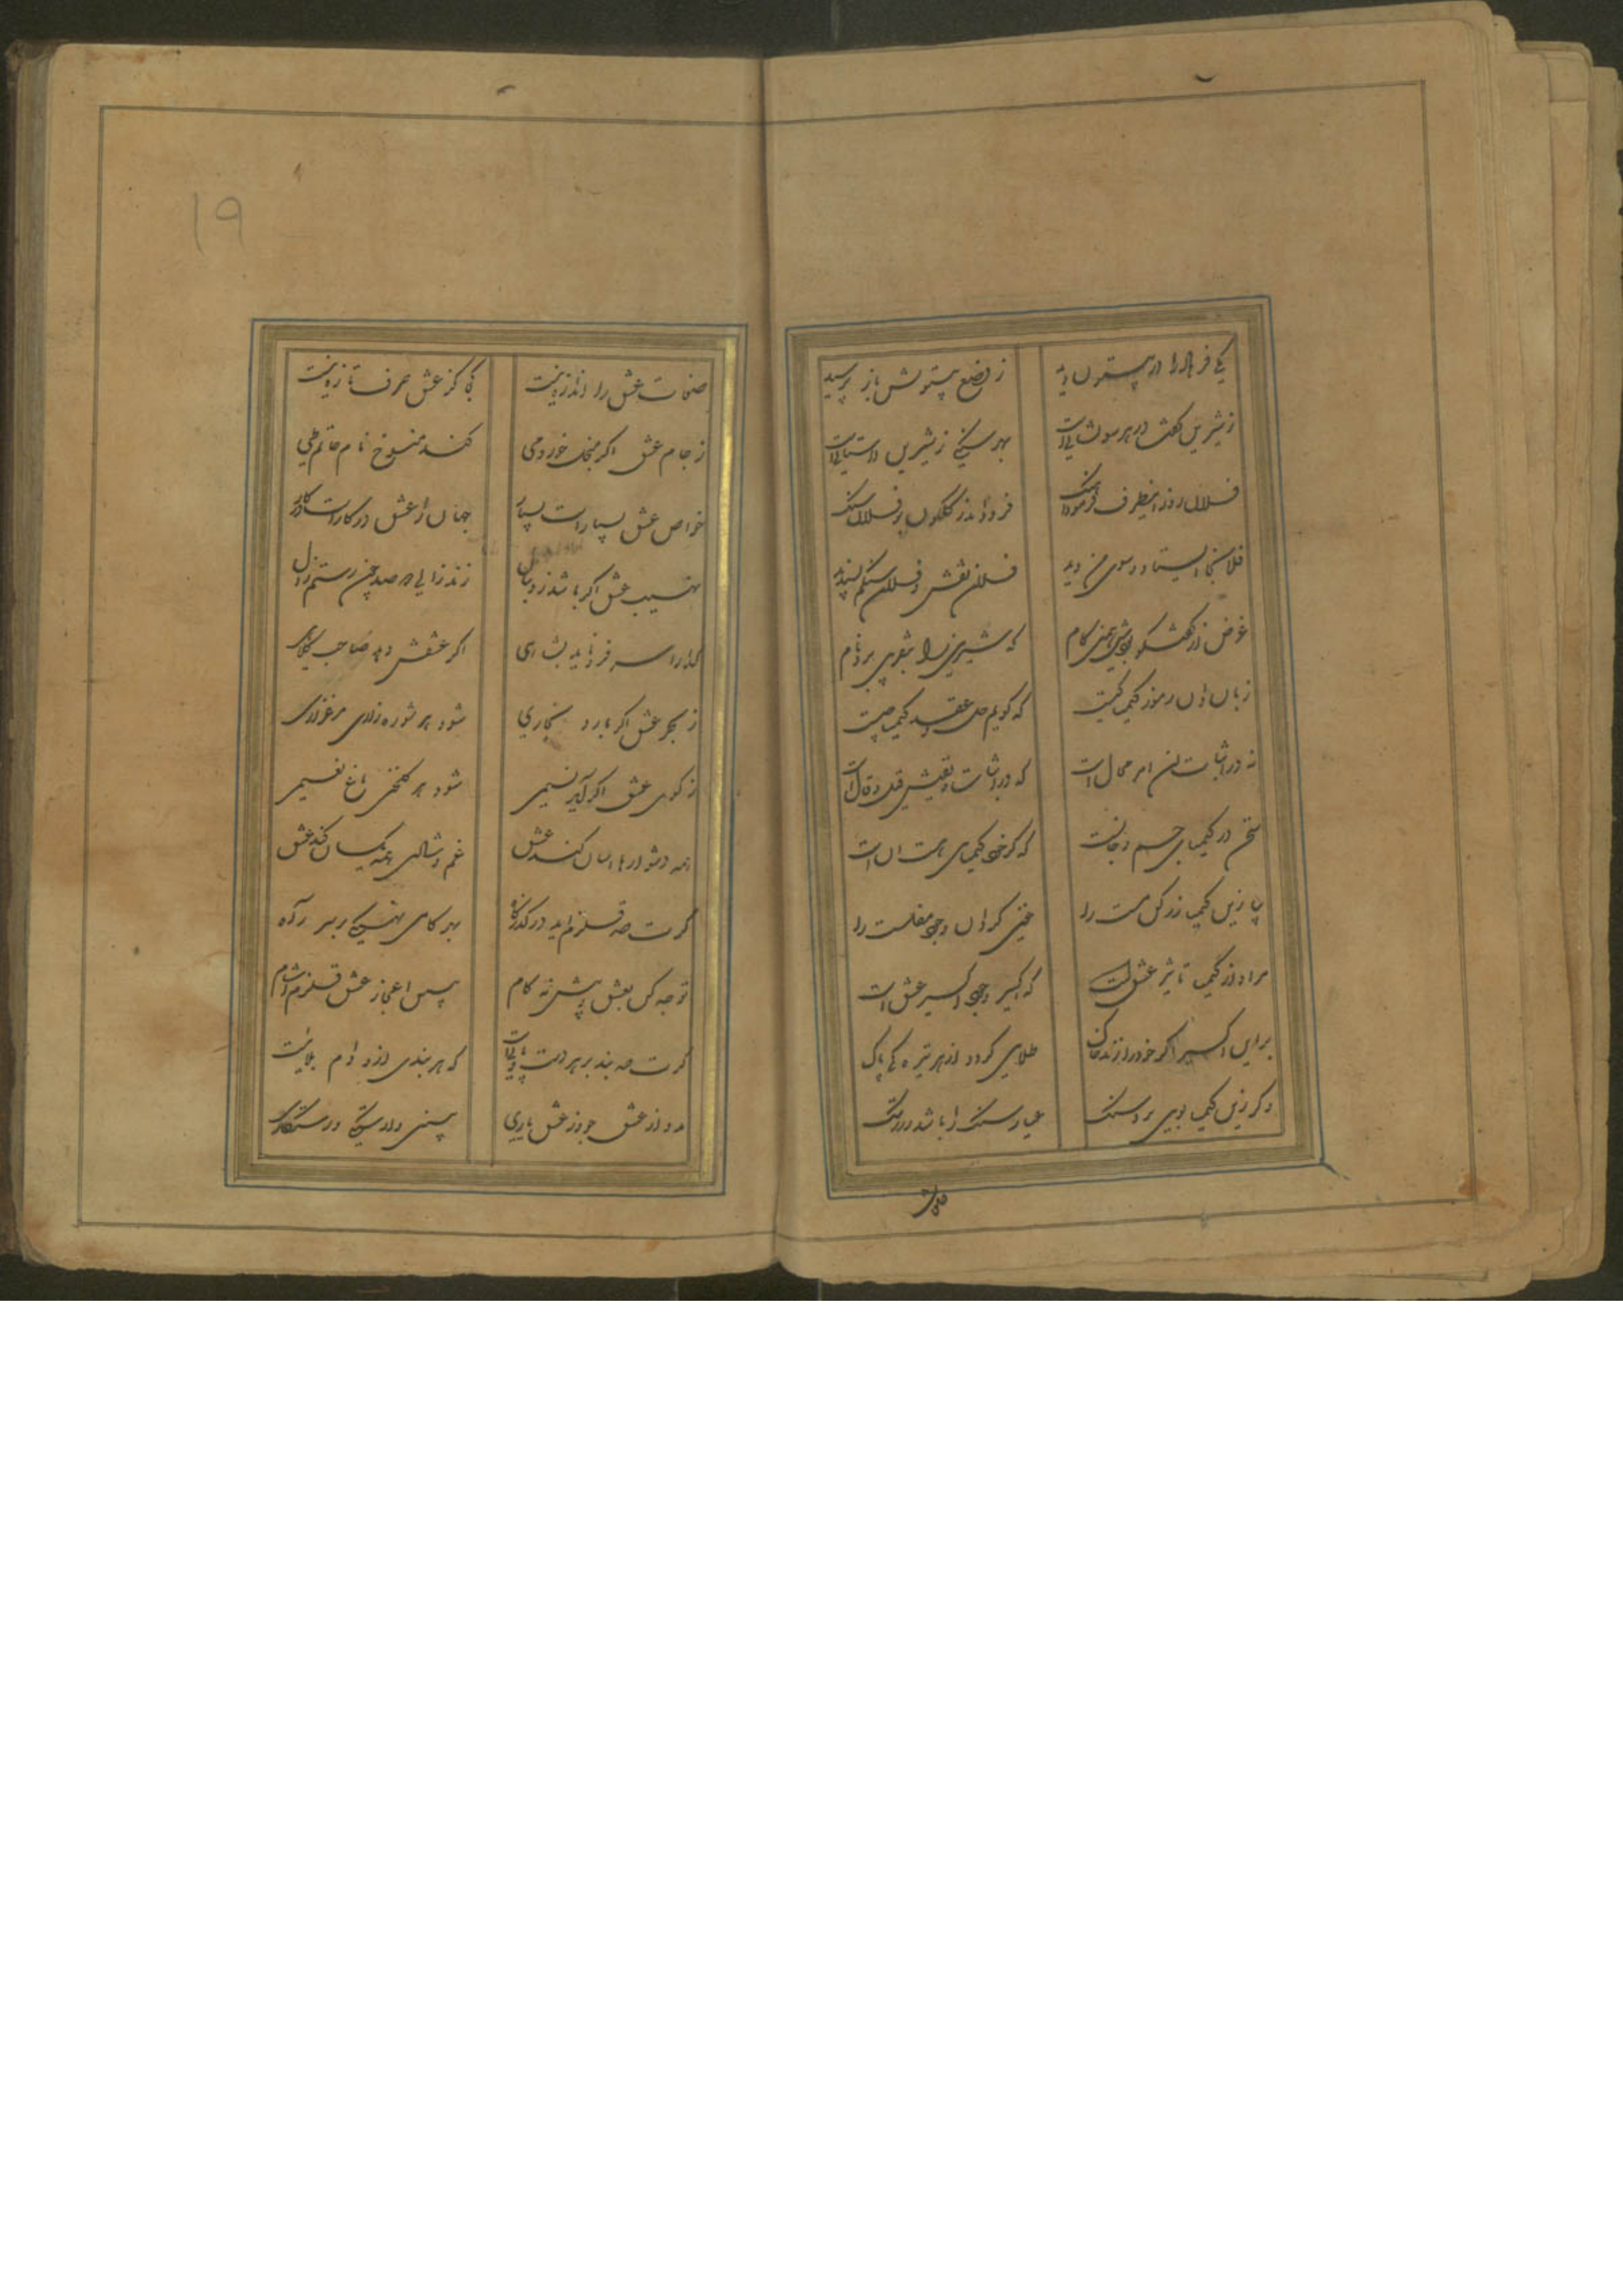 یکی فرهاد را در بیستون دید ز وضع بیستونش باز پرسید
ز شیرین گفت در هر سو نشانی است بهر سنگی ز شیرین داستانی است
فلان روز اینطرف فرمود آهنگ فرود آمد ز گلگون بر فلان سنگ
فلان جا ایستاد و سوی من دید فلان نقش و فلان سنگم پسندید
غرض زین گفت و گو بودش همین کام که شیرین را بتقریبی برد نام
زبان دان رموز کیمیا کیست که گویم حل و عقد کیمیا چیست
نه در اثبات این امر محال است که در اثبات و نفیش قیل و قال است
سخن در کیمیای جسم و جانست که گر خود کیمیای هست آن است
بیا زین کیمیا زر کن مست را غنی گردان وجود مفلست را
مراد از کیمیا تاثیر عشق است که اکسیر وجود اکسیر عشق است
بر این اکسیر اگر خود را زند خاک طلایی گردد از هر تیره گی پاک
وگر زین کیمیا بویی برد سنگ عیار سنگ را باشد زر
صفات
۱۹
صفات عشق را اندازه نیست کجا کز عشق حرف تازه نیست
ز جام عشق اگر ممسک خورد می کند منسوخ نام حاتم طی
خواص عشق بسیار است بسیار جهان را عشق در کار است در کار
نهیب عشق اگر باشد ز دنبال زند زالی بر صد چون رستم زال
گدا را سر فرو ناید بشاهی اگر عشقش دهد صاحب کلاهی
ز بحر عشق اگر بارد بخاری شود هر شوره زاری مرغزاری
ز کوی عشق اگر آید نسیمی شود هر گلخنی باغ نعیمی
همه دشوارها آسان کند عشق غم و شادی همه یکسان کند عشق
گرت صد قلزم آید در گذرگاه بهر گامی نهنگی بر سر راه
توجه کن بعشق و پیش نه گام ببین اعجاز عشق قلزم آشام
گرت صد بند بر هر دست و پاییست که هر بندی ازو دام بلاییست
مدد از عشق جو وز عشق یاری ببین وارستگی و رستگاری